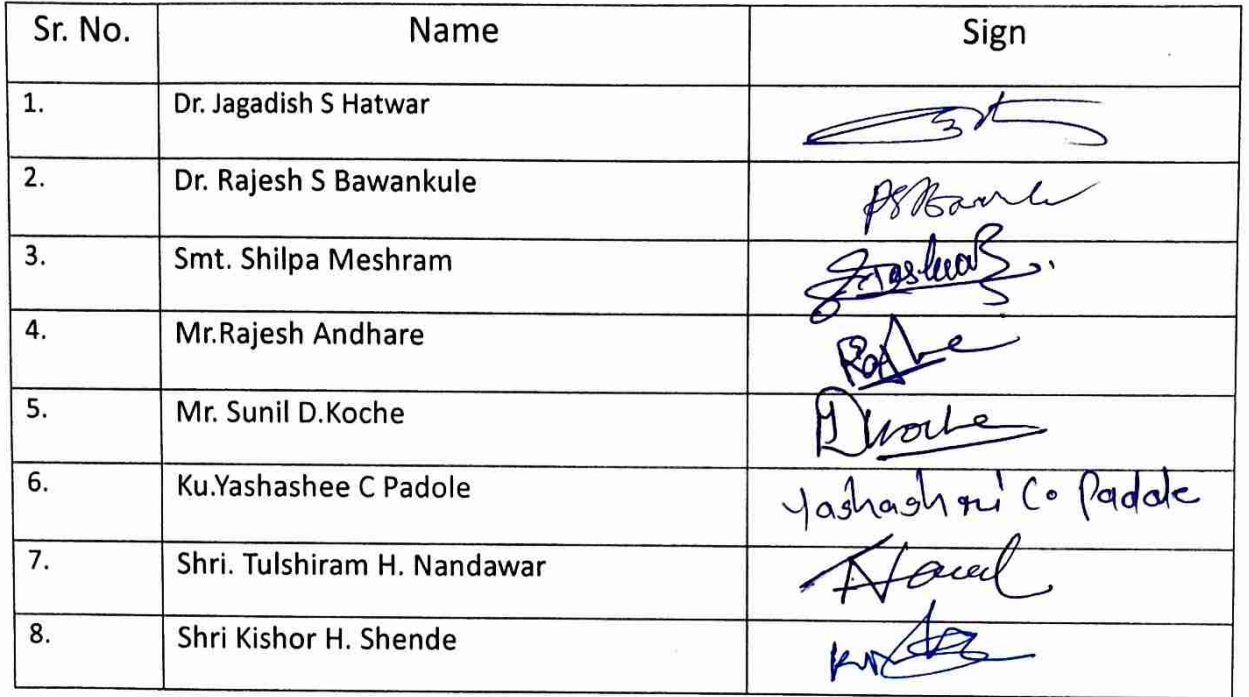 Sr. No. Name Sign
1. Dr. Jagadish S Hatwar
2. Dr. Rajesh S Bawankule
3. Smt. Shilpa Meshram
4. Mr.Rajesh Andhare
5. Mr. Sunil D.Koche
6. Ku.Yashashee C Padole Yashashri C. Padole
7. Shri. Tulshiram H. Nandawar
8. Shri Kishor H. Shende